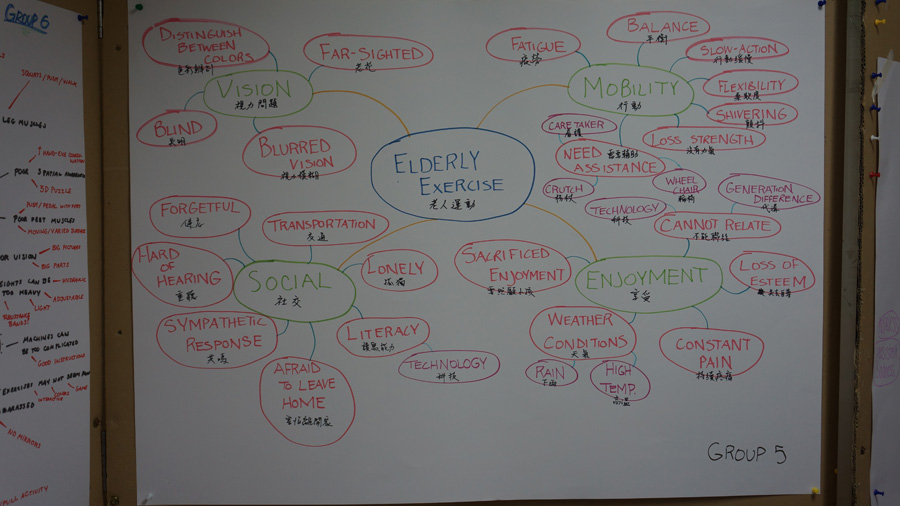 GROUP 6
SQUATS / PUSH / WALK
LEG MUSCLES
POOR
3D PUZZLE
POOR PERT MUSCLES
OR VISION
BIG PICTURE
BIG PARTS
TOO HEAVY
LIGHT
ADJUSTABLE
RESISTANCE
BANDS?
MACHINES CAN
BE TOO COMPLICATED
GOOD INSTRUCTIONS
EXERCISES MAY NOT
BARASSED
NO MIRRORS
FULL ACTIVITY
ELDERLY
EXERCISE
老人運動
VISION
視力問題
DISTINGUISH
BETWEEN
COLORS
色彩辨別
FAR-SIGHTED
老花
BLIND
失明
BLURRED
VISION
視力模糊
MOBILITY
行動
FATIGUE
疲勞
BALANCE
平衡
SLOW-ACTION
行動緩慢
FLEXIBILITY
柔軟度
SHIVERING
顫抖
LOSS STRENGTH
沒有力氣
NEED
ASSISTANCE
需要輔助
CARE TAKER
看護
CRUTCH
拐杖
TECHNOLOGY
科技
WHEEL
CHAIR
輪椅
SOCIAL
社交
FORGETFUL
健忘
TRANSPORTATION
交通
HARD
OF
HEARING
重聽
LONELY
孤獨
SYMPATHETIC
RESPONSE
共鳴
AFRAID
TO LEAVE
HOME
害怕離開家
LITERACY
讀寫能力
TECHNOLOGY
科技
ENJOYMENT
享受
SACRIFICED
ENJOYMENT
CANNOT RELATE
不能聯結
GENERATION
DIFFERENCE
代溝
LOSS OF
ESTEEM
CONSTANT
PAIN
持續疼痛
WEATHER
CONDITIONS
天氣
RAIN
下雨
HIGH
TEMP.
高溫
GROUP 5